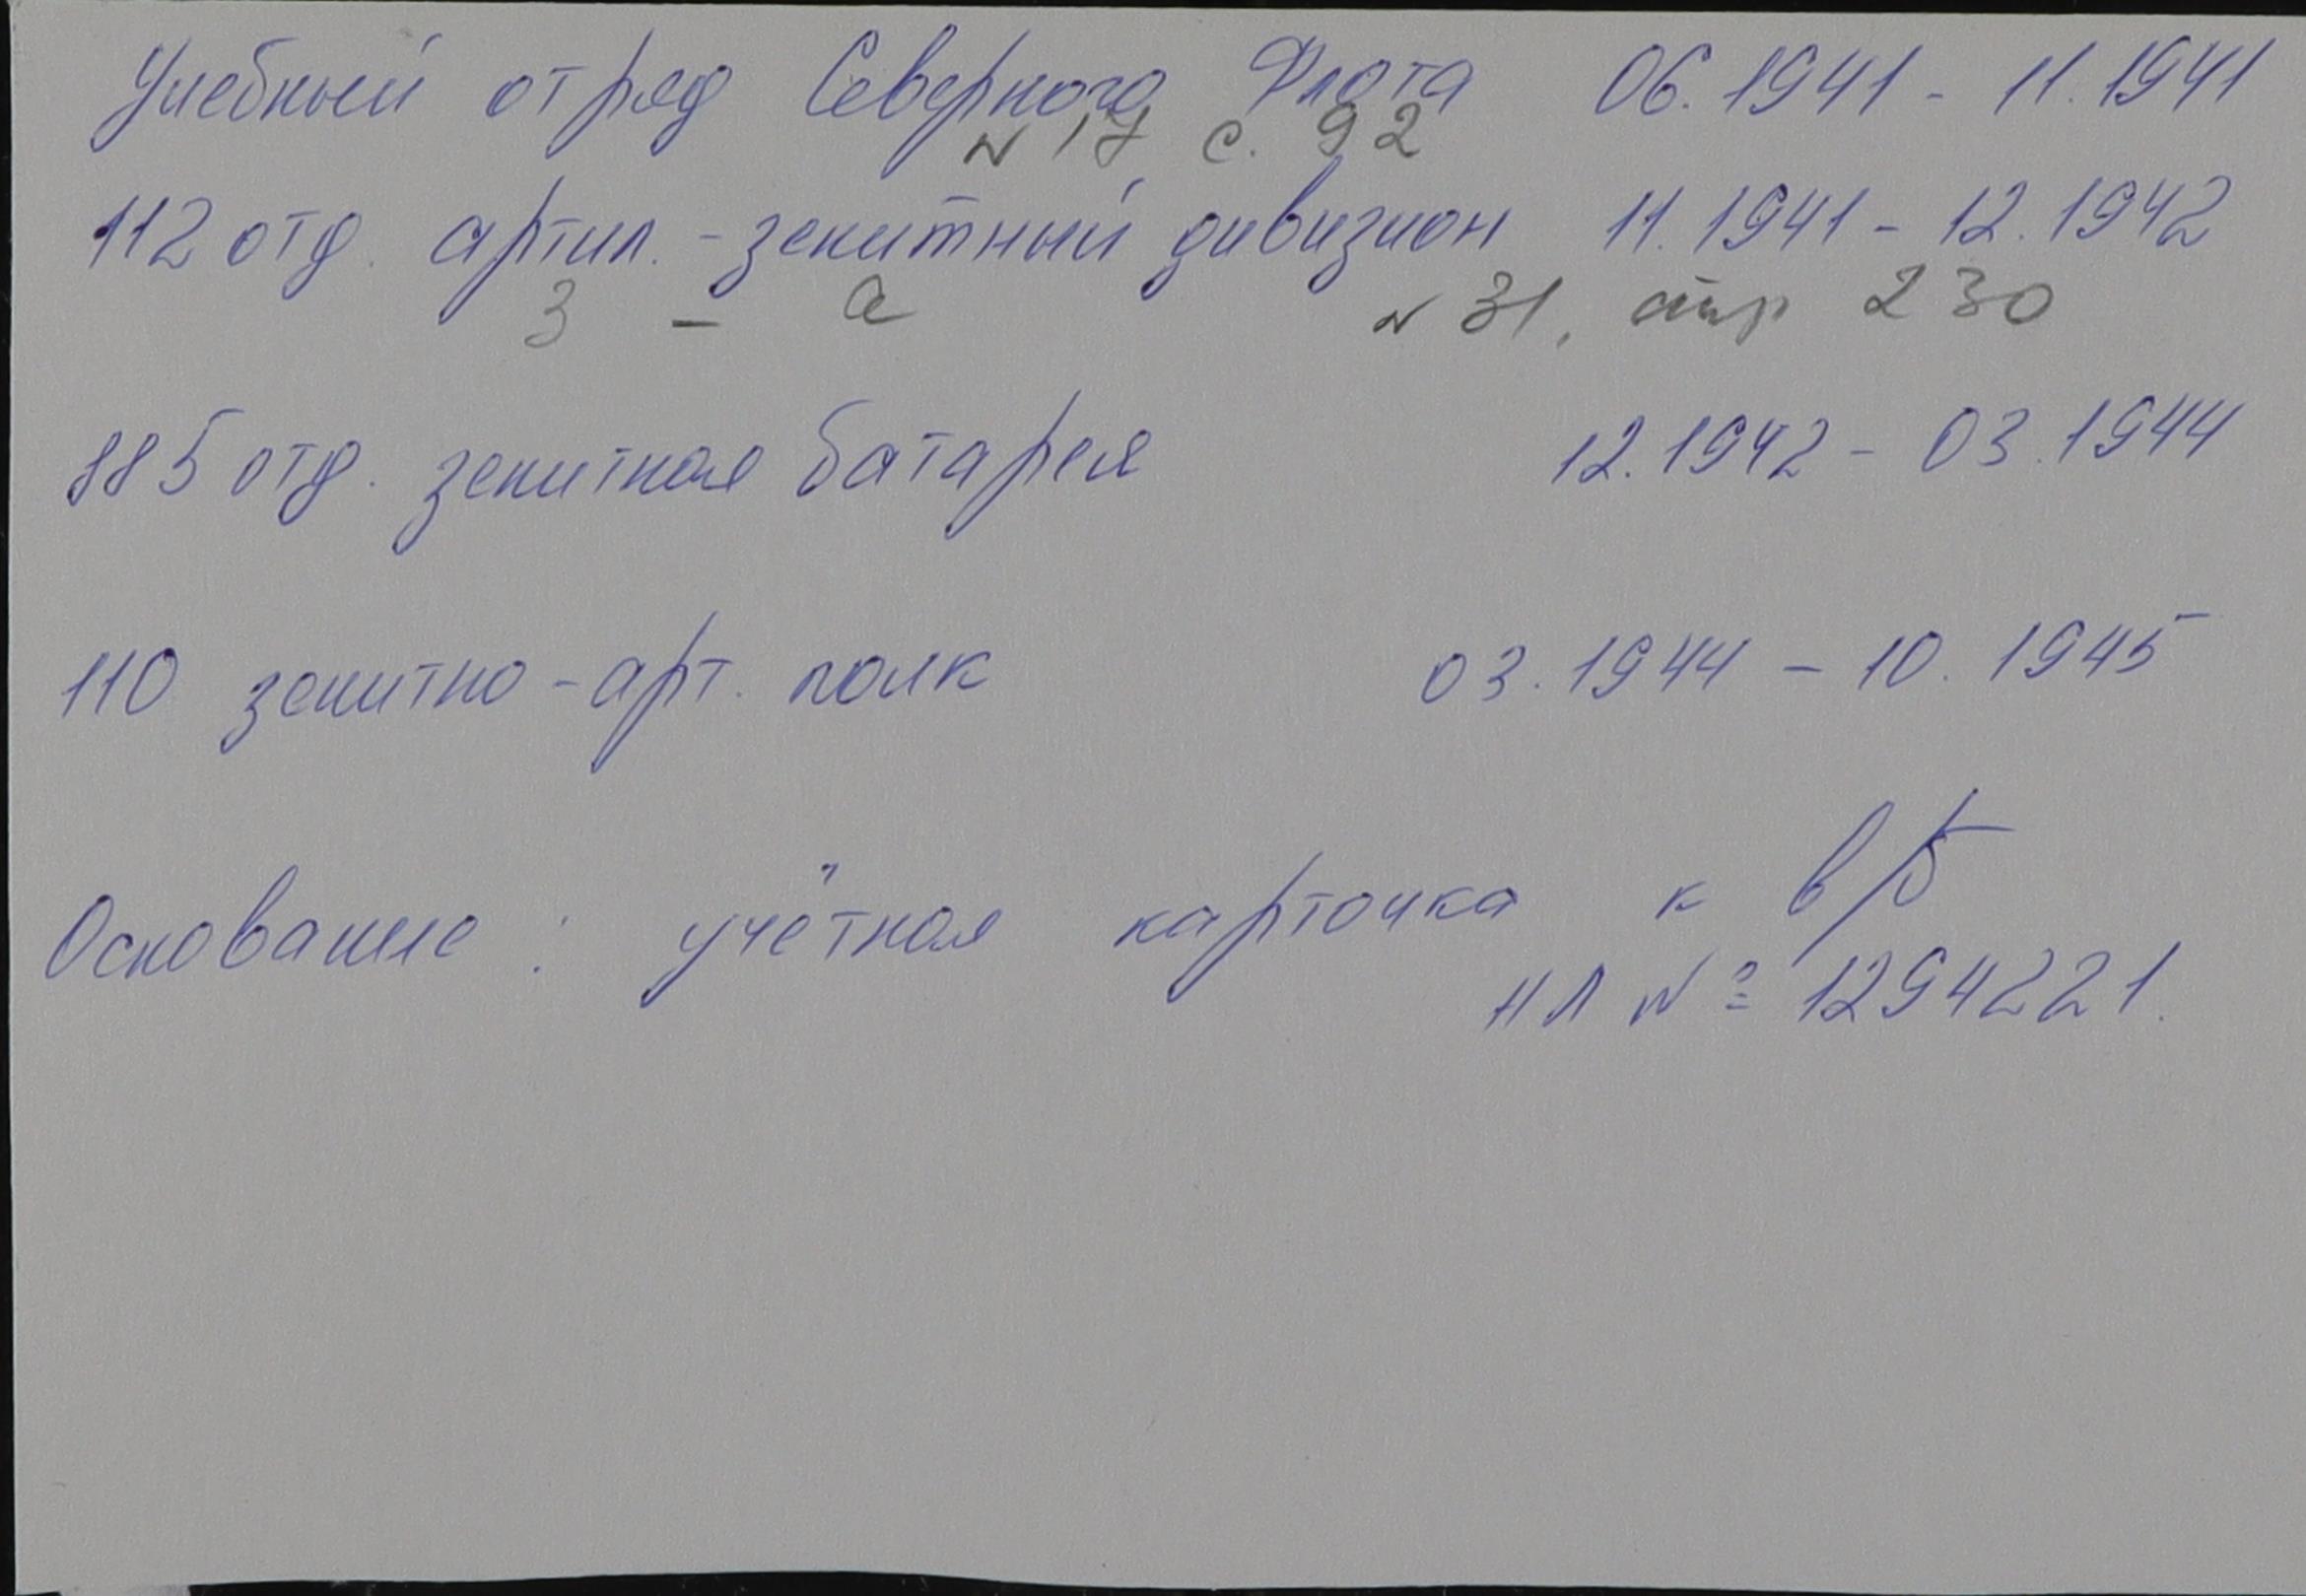 Учебный отряд Северного Флота 06.1941 - 11.1941
N 17 с. 92
112 отд. артил.-зенитный дивизион 11.1941 - 12.1942
З - а N 31, стр 230
885 отд. зенитная батарея 12.1942 - 03.1944
110 зенитно-арт. полк 03.1944 - 10.1945
Основание: учётная карточка к в/б
НЛ № 1294221.